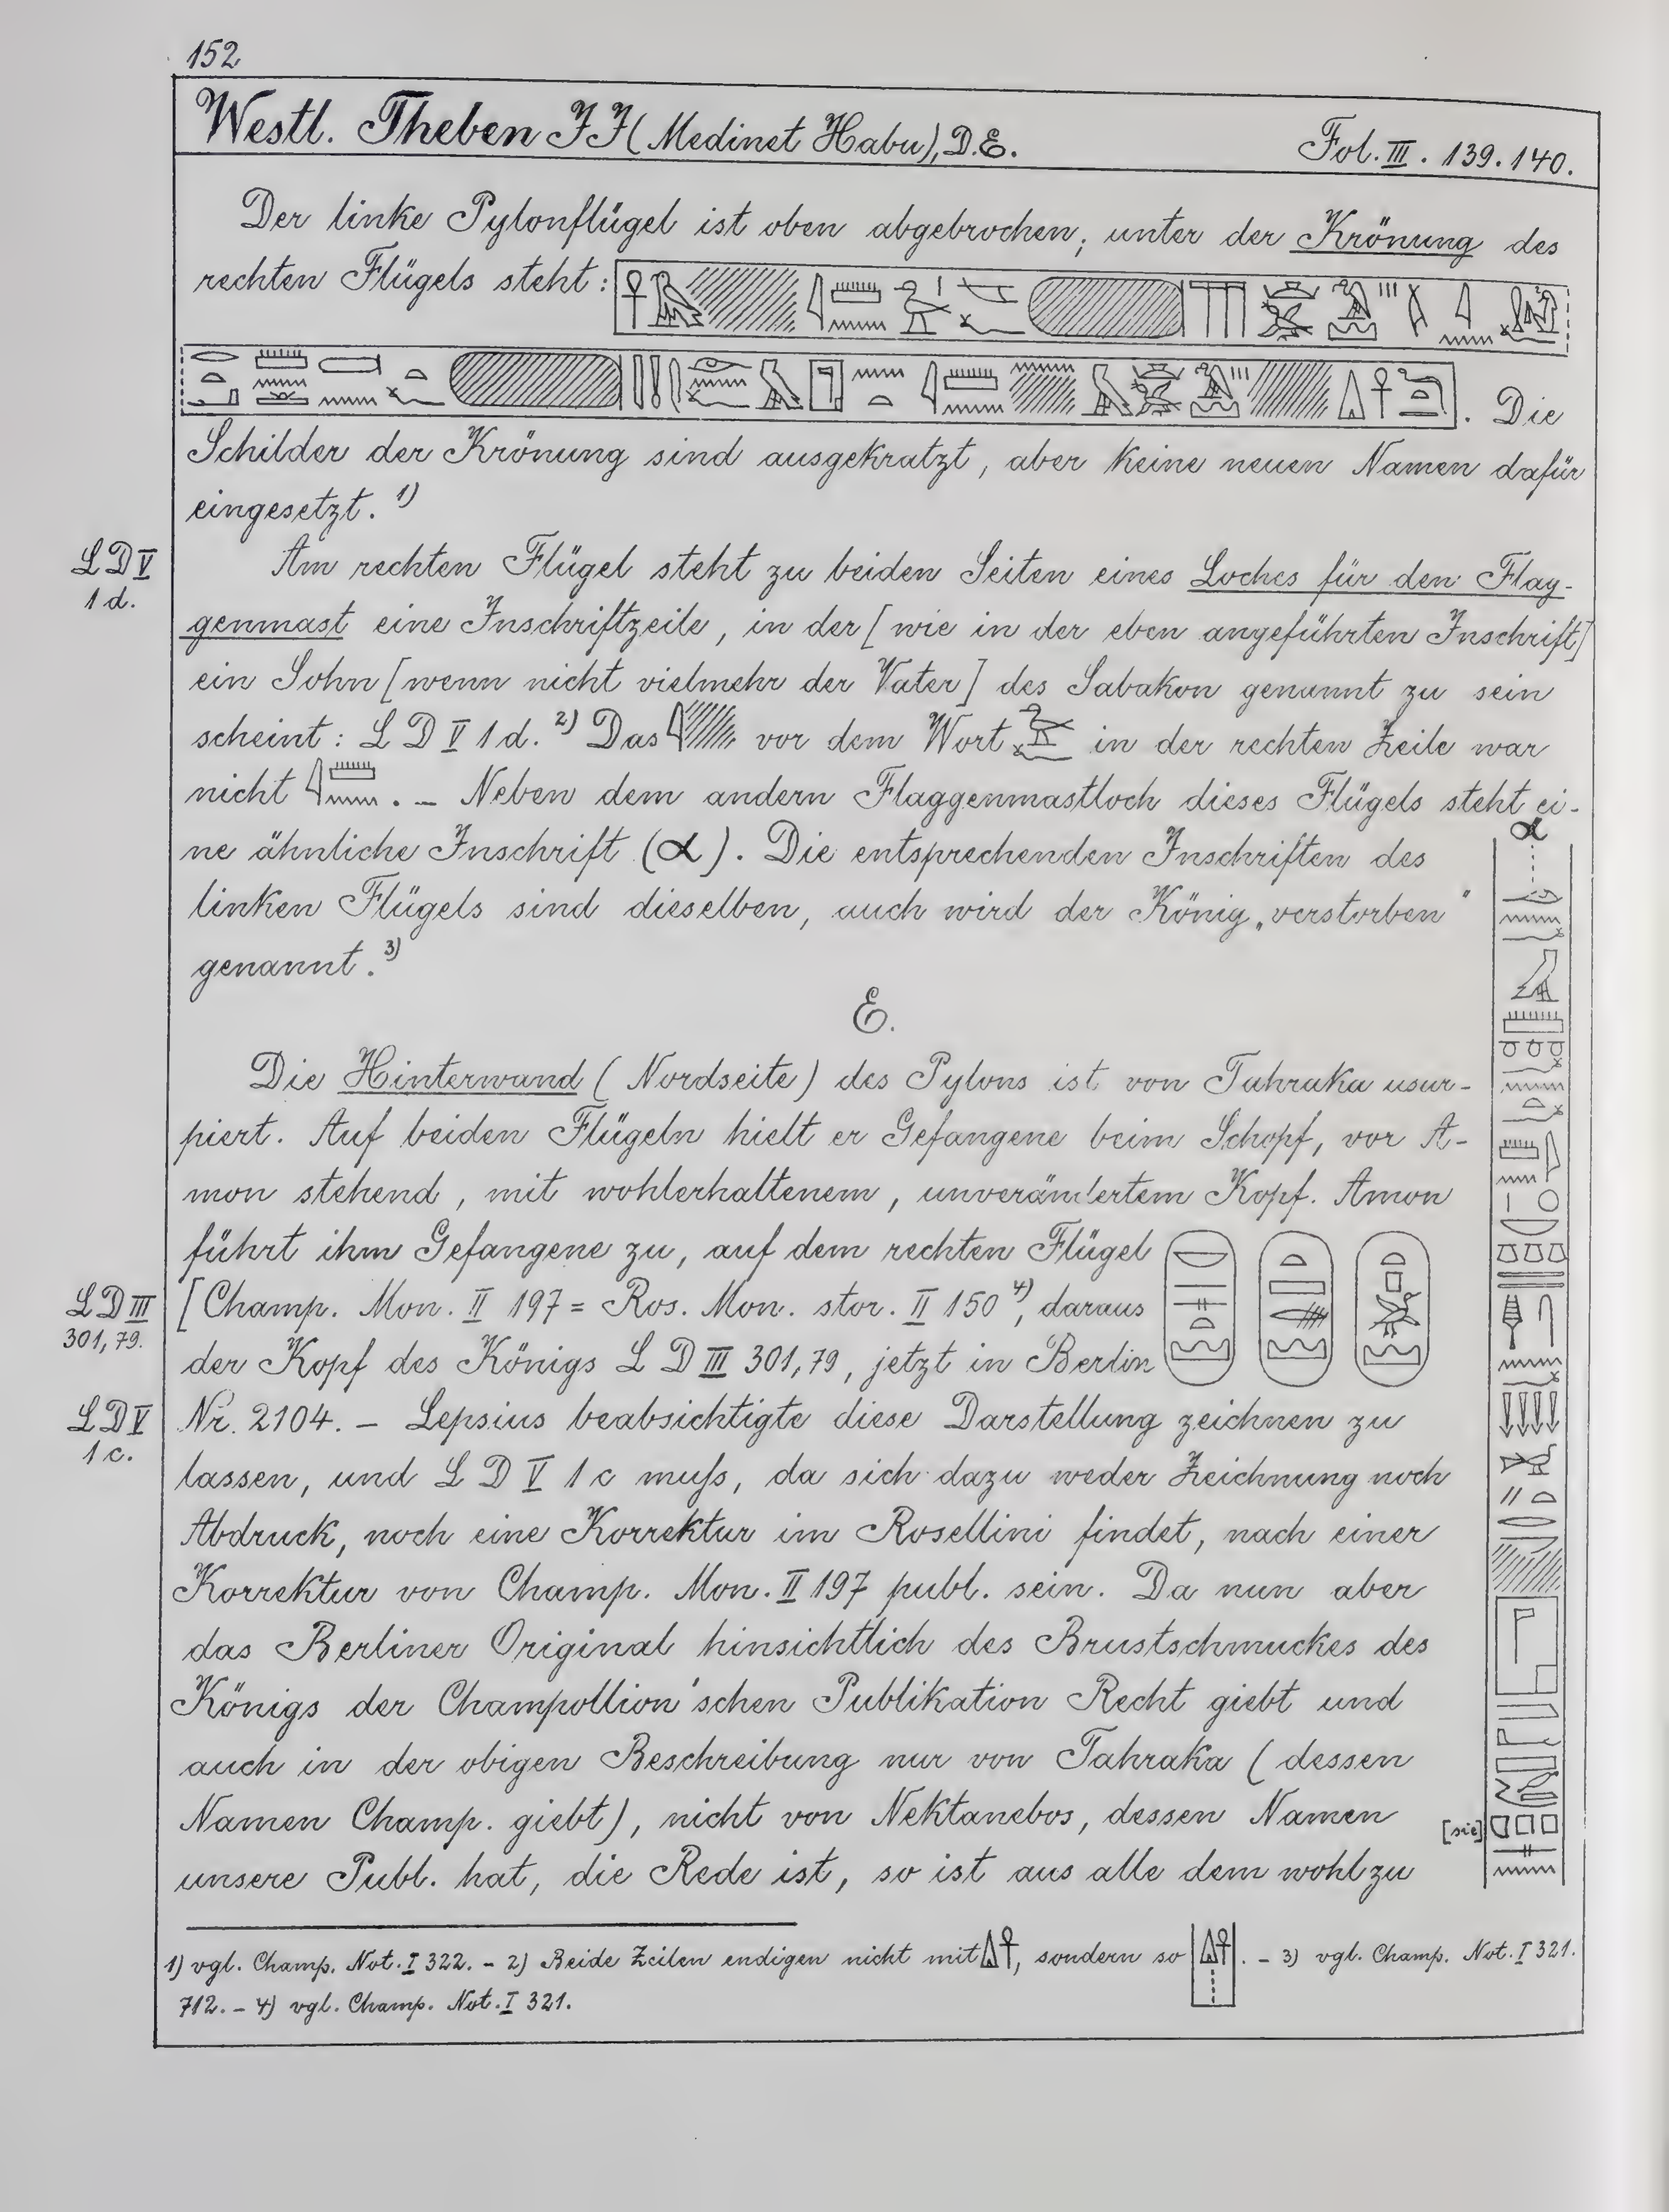 152
Westl. Theben JJ (Medinet Habu), D.E. Fol. III. 139. 140.
Der linke Pylonflügel ist oben abgebrochen; unter der Krönung des
rechten Flügels steht:
. Die
Schilder der Krönung sind ausgekratzt, aber keine neuen Namen dafür
eingesetzt. 1)
LD V
1 d.
Am rechten Flügel steht zu beiden Seiten eines Loches für den Flag-
genmast eine Inschriftzeile, in der [wie in der eben angeführten Inschrift]
ein Sohn [wenn nicht vielmehr der Vater] des Sabakon genannt zu sein
scheint: L D V 1 d. 2) Das vor dem Wort in der rechten Zeile war
nicht . – Neben dem andern Flaggenmastloch dieses Flügels steht ei-
α
ne ähnliche Inschrift (α). Die entsprechenden Inschriften des
linken Flügels sind dieselben, auch wird der König „verstorben"
genannt. 3)
E.
Die Hinterwand (Nordseite) des Pylons ist von Tahraka usur-
piert. Auf beiden Flügeln hielt er Gefangene beim Schopf, vor A-
mon stehend, mit wohlerhaltenem, unverändertem Kopf. Amon
führt ihm Gefangene zu, auf dem rechten Flügel
LD III
301, 79.
[Champ. Mon. II 197 = Ros. Mon. stor. II 150 4), daraus
der Kopf des Königs L D III 301, 79, jetzt in Berlin
LD V
1 c.
Nr. 2104. – Lepsius beabsichtigte diese Darstellung zeichnen zu
lassen, und L D V 1 c muſs, da sich dazu weder Zeichnung noch
Abdruck, noch eine Korrektur im Rosellini findet, nach einer
Korrektur von Champ. Mon. II 197 publ. sein. Da nun aber
das Berliner Original hinsichtlich des Brustschmuckes des
Königs der Champollion'schen Publikation Recht giebt und
auch in der obigen Beschreibung nur von Tahraka (dessen
Namen Champ. giebt), nicht von Nektanebos, dessen Namen
[sic]
unsere Publ. hat, die Rede ist, so ist aus alle dem wohl zu
1) vgl. Champ. Not. I 322. – 2) Beide Zeilen endigen nicht mit , sondern so . – 3) vgl. Champ. Not. I 321.
712. – 4) vgl. Champ. Not. I 321.